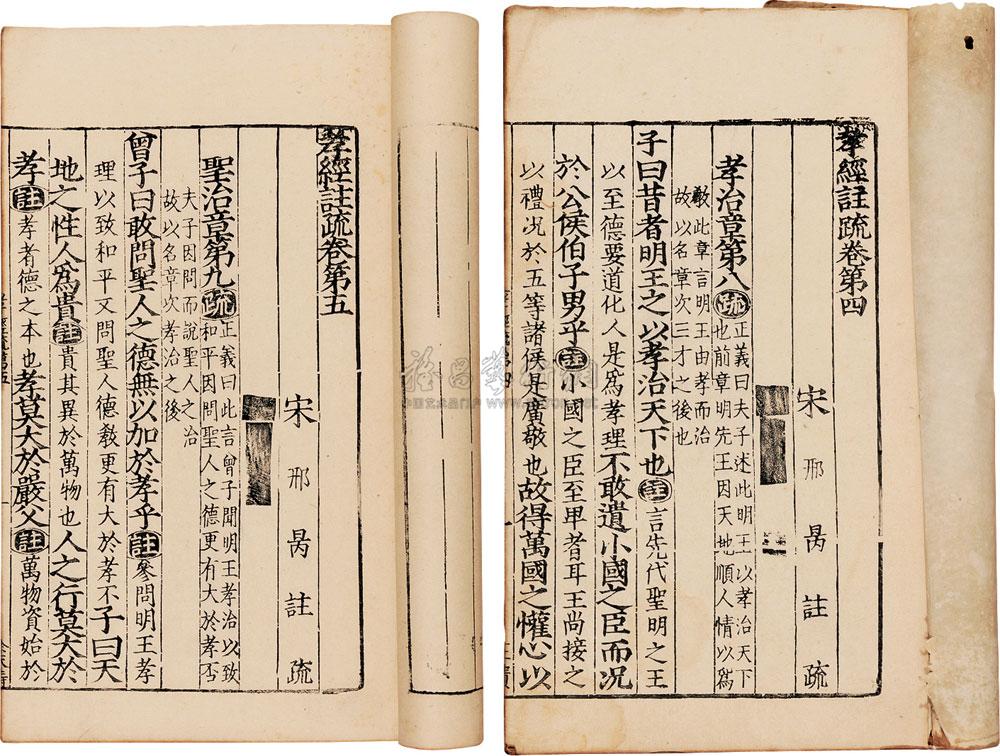 孝經註疏卷第四
宋邢昺註疏
孝治章第八疏正義曰夫子述此明王以孝治天下
也前章明先王因天地順人情以爲
教此章言明王由孝而治
故以名章次三才之後也
子曰昔者明王之以孝治天下也註言先代聖明之王
以至德要道化人是爲孝理不敢遺小國之臣而況
於公侯伯子男乎註小國之臣至卑者耳王尚接之
以禮況於五等諸侯是廣敬也故得萬國之懽心以
孝經註疏卷第五
宋邢昺註疏
聖治章第九疏正義曰此言曾子聞明王孝治以致
和平因問聖人之德更有大於孝否
夫子因問而說聖人之治
故以名章次孝治之後
曾子曰敢問聖人之德無以加於孝乎註參問明王孝
理以致和平又問聖人德教更有大於孝不子曰天
地之性人爲貴註貴其異於萬物也人之行莫大於
孝註孝者德之本也孝莫大於嚴父註萬物資始於